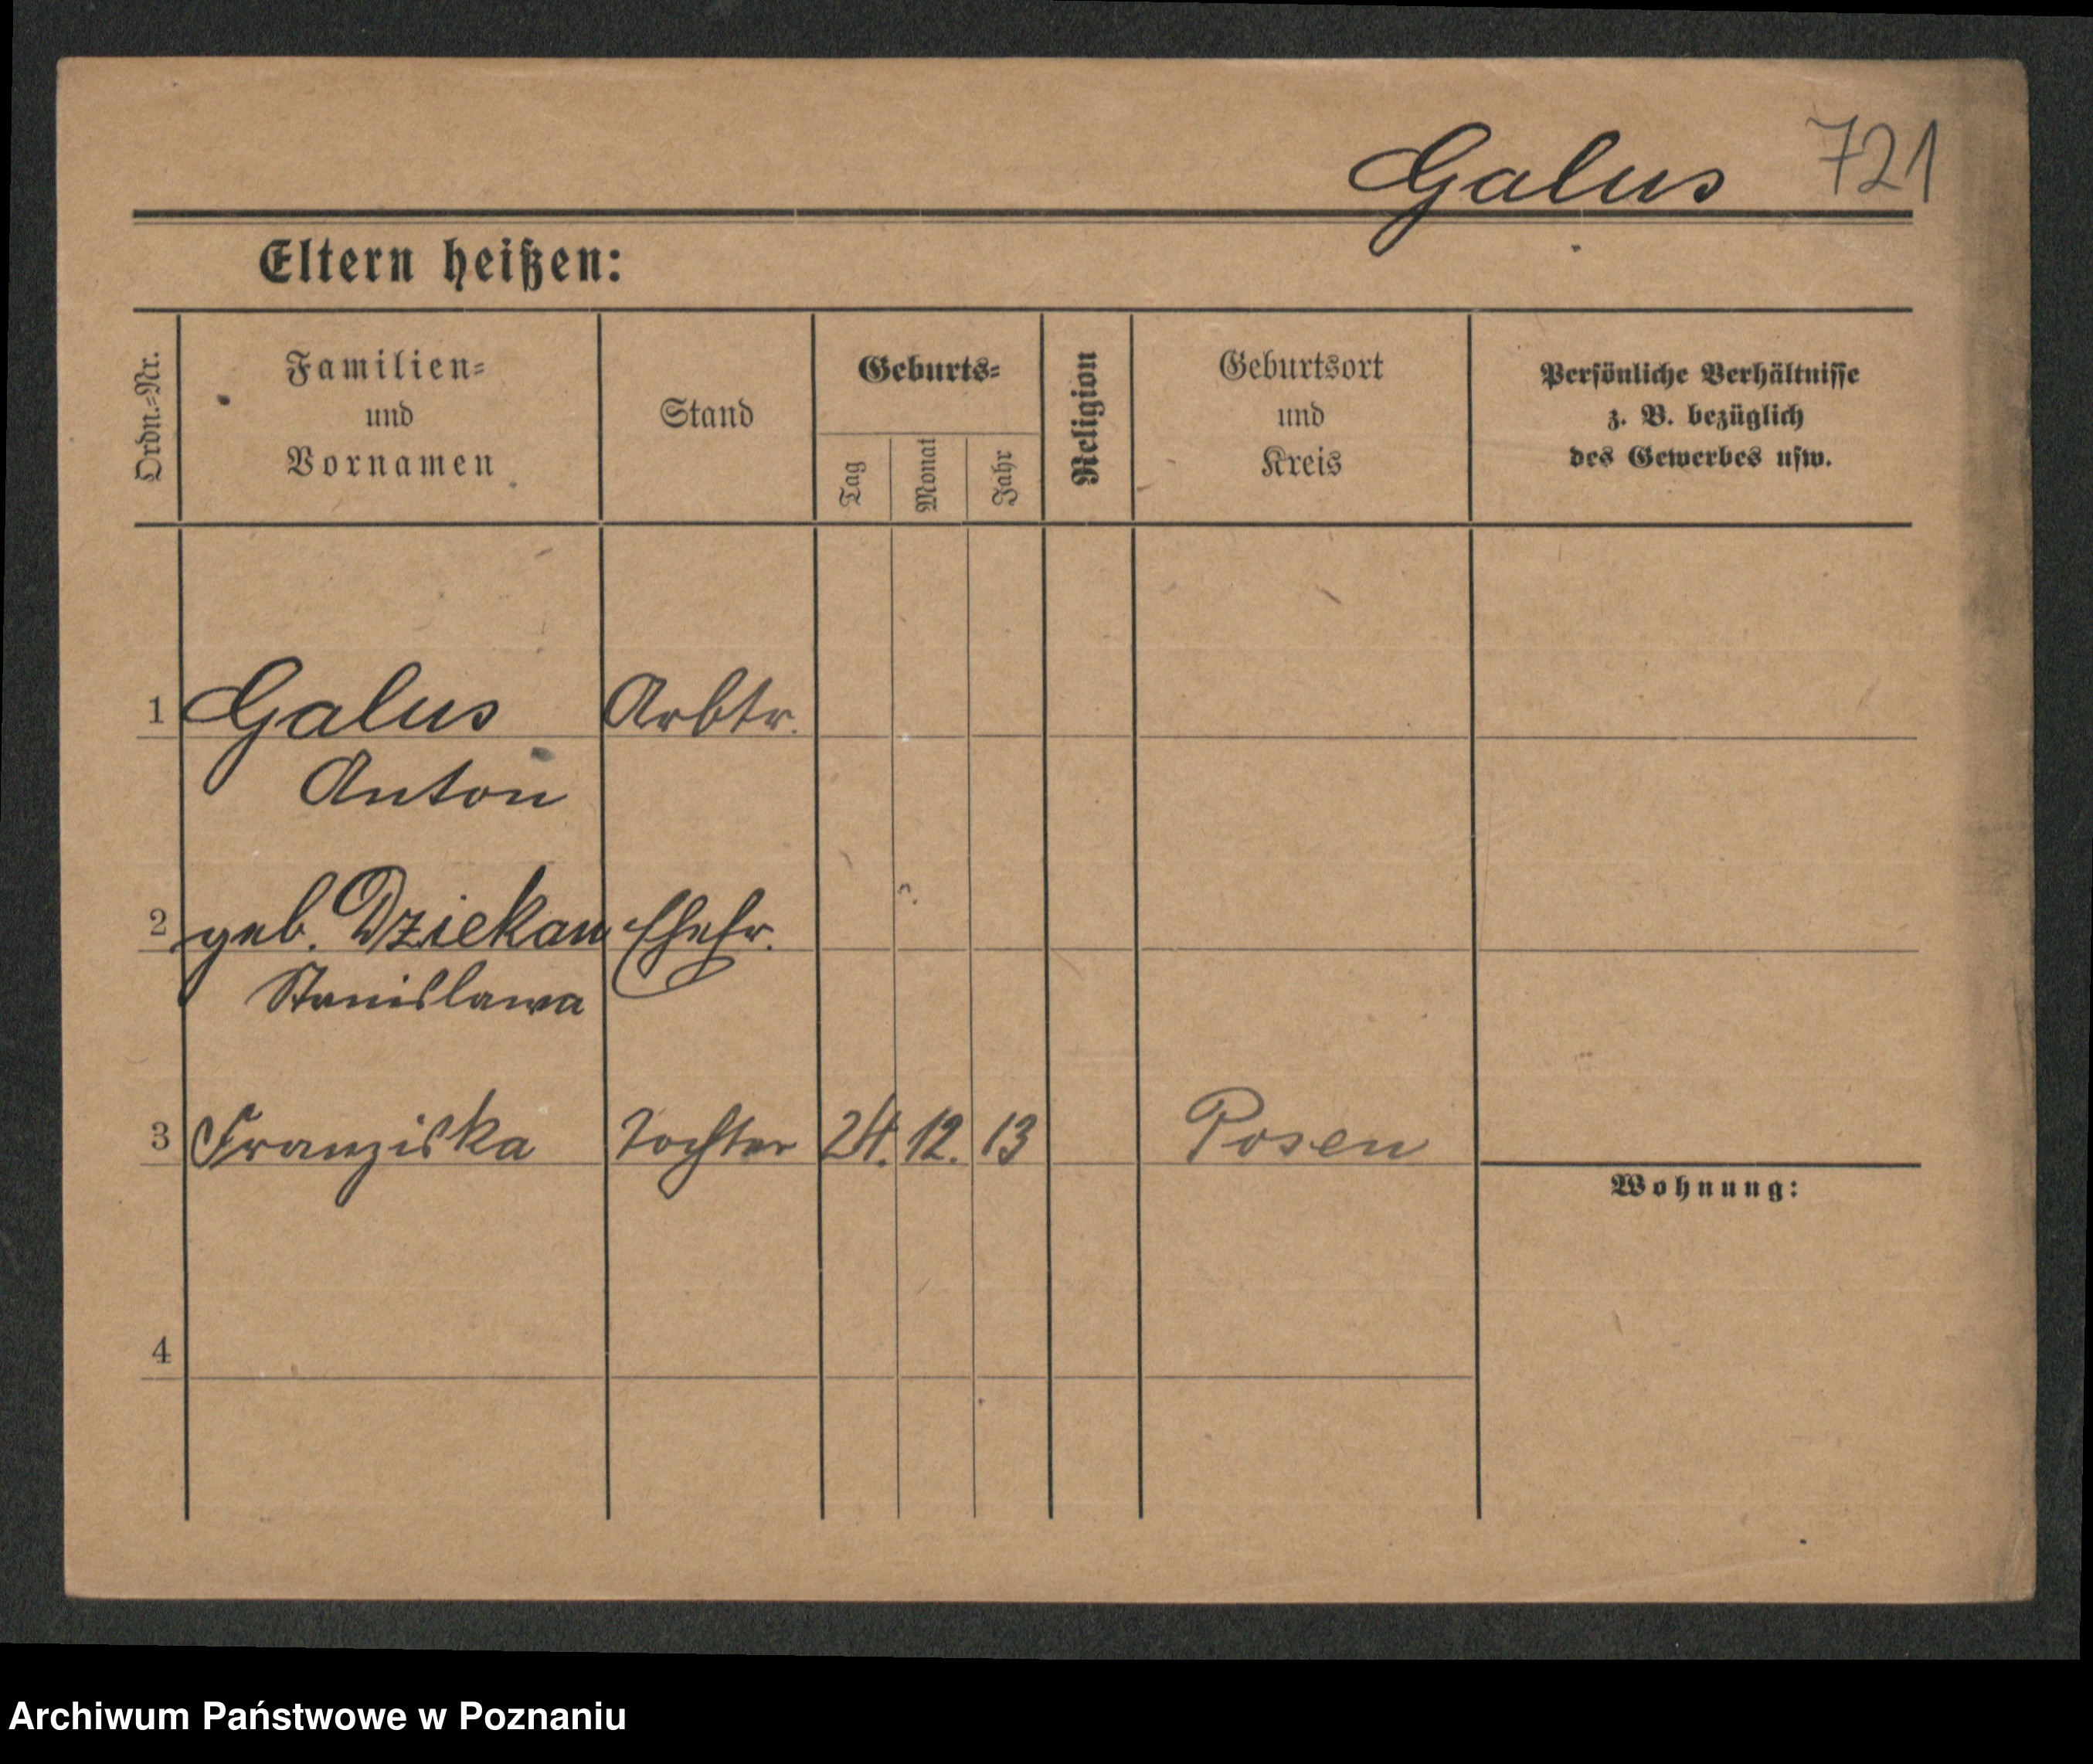 Galus 721
Eltern heißen:
Ordn.-Nr.
Familien-
und
Vornamen
Stand
Geburts-
Tag
Monat
Jahr
Religion
Geburtsort
und
Kreis
Persönliche Verhältnisse
z. B. bezüglich
des Gewerbes usw.
1 Galus Arbtr.
Anton
2 geb. Dziekan Ehefr.
Stanislawa
3 Franziska Tochter 24. 12. 13 Posen
Wohnung:
4
Archiwum Państwowe w Poznaniu